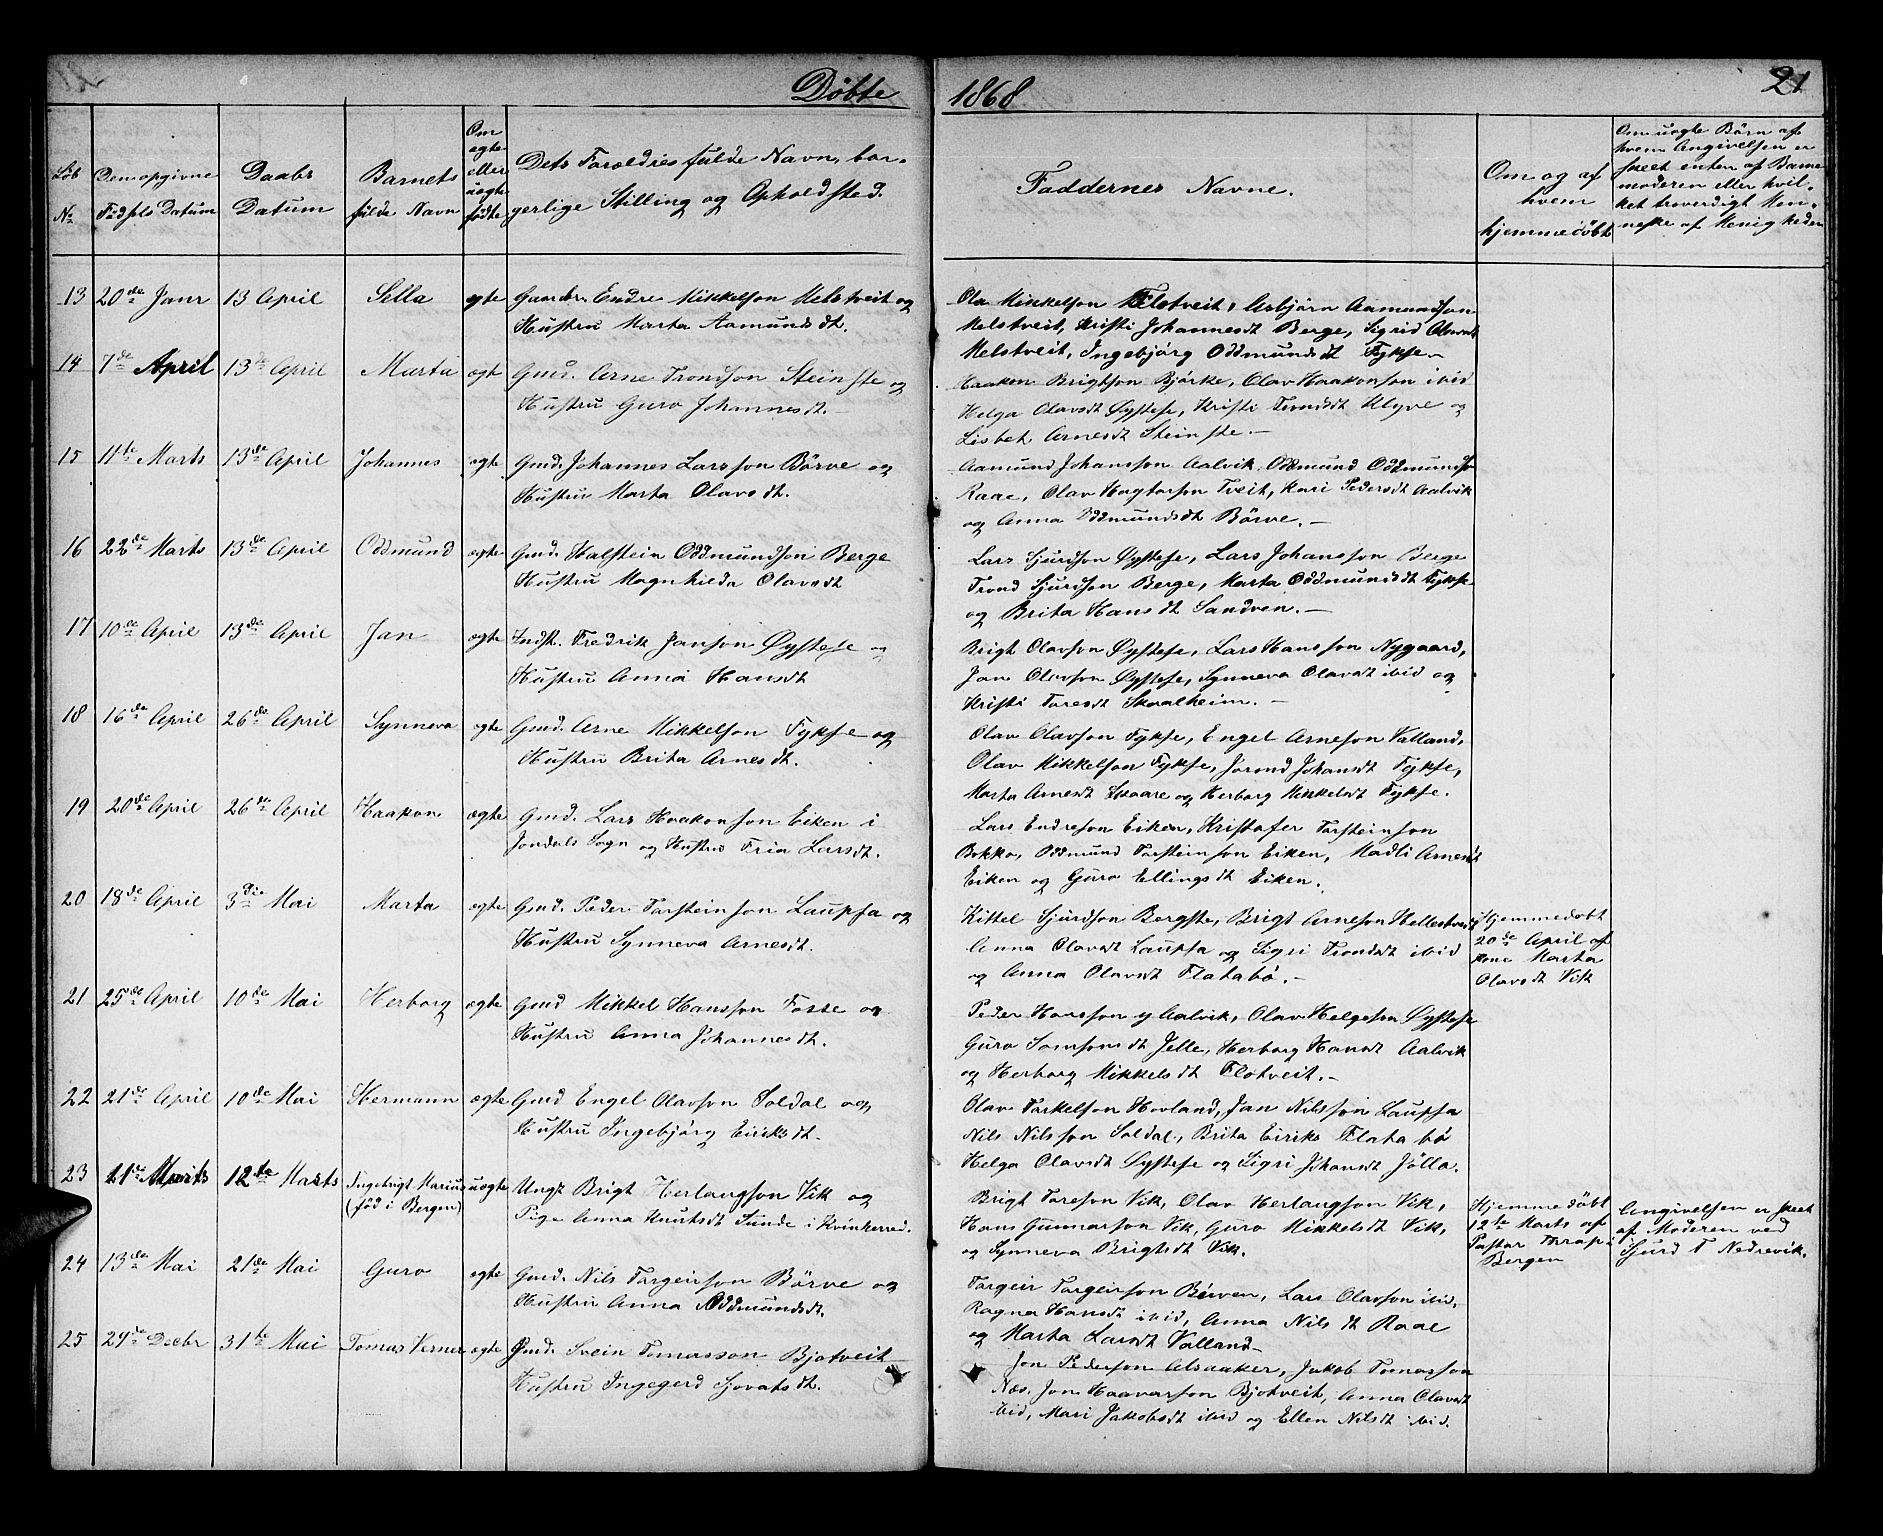 Døbte 1868 21
Løb No
Den opgivne Fødsels Datum
Daabs Datum
Barnets fulde Navn
Om ægte eller uægte fødte
Dets Forældres fulde Navn, bor-
gerlige Stilling og Opholdsted.
Faddernes Navne.
Om og af hvem hjemmedøbt
Om uægte Børn af
hvem Angivelsen er
skeet enten af Barne
moderen eller hvil-
ket troverdigt Men-
neske af Menigheden
13 20de Janr 13 April Sella ægte Gaardbr. Endre Mikkelson Melstveit og
Hustru Marta Aamundsdt.
Ola Mikkelson Flotveit, Asbjörn Aamundson
Melstveit, Kristi Johannesdt Berge, Sigrid Olavsdt
Melstveit, Ingebjörg Oddmundsdt Fykse
14 7de April 13de April Marta ægte Gmd. Arne Trondson Steinste og
Hustru Guro Johannesdt.
Haaken Brigtson Björke, Olav Haakonson ibid
Helga Olavsdt Øystese, Kristi Trondsdt Klyve og
Lisbet Arnesdt Steinste.
15 11te Marts 13de April Johannes ægte Gmd. Johannes Larsson Börve og
Hustru Marta Olavsdt.
Aamund Johansson Aalvik, Oddmund Oddmundson
Raae, Olav Hagtorson Tveit, Kari Pedersdt Aalvik
og Anna Oddmundsdt Börve.
16 22de Marts 13de April Oddmund ægte Gmd. Halstein Oddmundson Berge
Hustru Magnhilda Olavsdt
Lars Sjurdson Øystese, Lars Johansson Berge
Trond Sjurdson Berge, Marta Oddmundsdt Fykse
og Brita Hansdt Sandven.
17 10de April 13de April Jan ægte Indst. Fredrik Janson Øystese og
Hustru Anna Hansdt
Brigt Olavson Øystese, Lars Hansson Nygaard,
Jan Olavson Øystese, Synneva Olavsdt ibid og
Kristi Toresdt Skaalheim.
18 16de April 26de April Synneva ægte Gmd. Arne Mikkelson Fykse og
Hustru Brita Arnesdt.
Olav Olavson Fykse, Engel Arneson Valland,
Olav Mikkelson Fykse, Jorond Johansdt Fykse,
Marta Arnesdt Skaare og Herborg Mikkelsdt Fykse.
19 20de April 26de April Haakon ægte Gmd. Lars Haakonson Eiken i
Jondals Sogn og Hustru Fria Larsdt.
Lars Endreson Eiken, Kristofer Torsteinson
Bokko, Oddmund Torsteinson Eiken, Madli Arnesdt
Eiken og Guro Ellingsdt Eiken.
20 18de April 3die Mai Marta ægte Gmd. Peder Torsteinson Laupsa og
Hustru Synneva Arnesdt.
Kittel Sjurdson Bergste, Brigt Arneson Hellestveit
Anna Olavsdt Laupsa og Sigri Trondsdt ibid
og Anna Olavsdt Flatabø.
Hjemmedøbt
20de April af
Kone Marta
Olavsdt Vik
21 25de April 10de Mai Herborg ægte Gmd Mikkel Hansson Fosse og
Hustru Anna Johannesdt.
Peder Hansson y Aalvik, Olav Helgeson Øystese
Guro Samsonsdt Jelle, Herborg Hansdt Aalvik
og Herborg Mikkelsdt Flotveit.
22 21de April 10de Mai Hermann ægte Gmd Engel Olavson Soldal og
Hustru Ingebjörg Eiriksdt.
Olav Torkelson Hovland, Jan Nilsson Laupsa
Nils Nilsson Soldal, Brita Eiriks Flatabö
Helga Olavsdt Øystese og Sigri Johansdt Jölla.
23 11te Marts 12te Marts Ingebrigt Marius
(fød i Bergen) uægte Ungk Brigt Herlaugson Vik og
Pige Anna Knutsdt Sunde i Kvinherred.
Brigt Toreson Vik, Olav Herlaugson Vik,
Hans Gunnarson Vik, Guro Mikkelsdt Vik,
og Synneva Brigtsdt Vik.
Hjemmedøbt
12te Marts af
Pastor Thrap i
Bergen
Angivelsen er skeet
af Moderen ved
Sjurd T Nedrevik.
24 13de Mai 21de Mai Guro ægte Gmd. Nils Torgeirson Börve og
Hustru Anna Oddmundsdt.
Torgeir Torgeirson Börven, Lars Olavson ibid,
Ragna Hansdt ibid, Anna Nilsdt Raae
og Marta Larsdt Valland
25 24de Decbr 31te Mai Tomas Verner ægte Gmd. Svein Tomasson Bjotveit
Hustru Ingegerd Sjovatsdt.
Jon Pederson Alsaaker, Jakob Tomasson
Næs, Jon Haavarson Bjotveit, Anna Olavsdt
ibid, Mari Jakobsdt ibid og Ellen Nilsdt ibid.